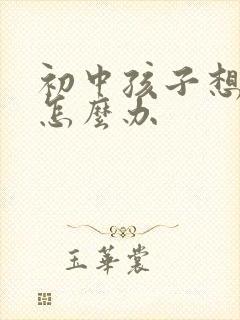 初中孩子想
怎麼办
玉華裳